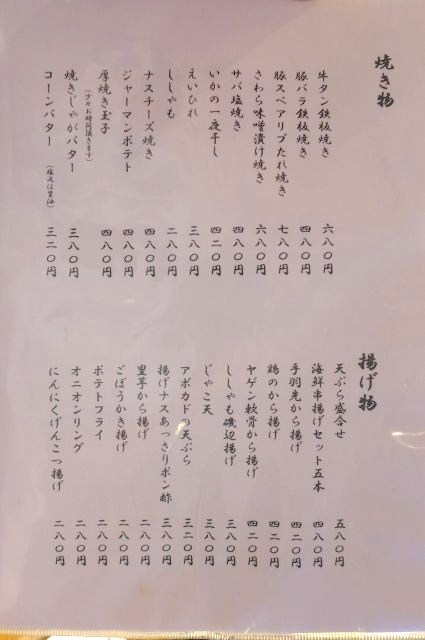 焼き物
牛タン鉄板焼き 六八〇円
豚バラ鉄板焼き 四八〇円
豚スペアリブたれ焼き 七八〇円
さわら味噌漬け焼き 六八〇円
サバ塩焼き 四八〇円
いかの一夜干し 四二〇円
えいひれ 三八〇円
ししゃも 二八〇円
ナスチーズ焼き 四八〇円
ジャーマンポテト 四八〇円
厚焼き玉子 四八〇円
(少々お時間頂きます)
焼きじゃがバター 三八〇円
コーンバター (塩又は醤油) 三二〇円
揚げ物
天ぷら盛合せ 五八〇円
海鮮串揚げセット五本 四八〇円
手羽先から揚げ 四二〇円
鶏のから揚げ 四二〇円
ヤゲン軟骨から揚げ 四二〇円
ししゃも磯辺揚げ 三八〇円
じゃこ天 三八〇円
アボカドの天ぷら 三二〇円
揚げナスあっさりポン酢 三八〇円
里芋から揚げ 二八〇円
ごぼうかき揚げ 二八〇円
ポテトフライ 二八〇円
オニオンリング 二八〇円
にんにくげんこつ揚げ 二八〇円